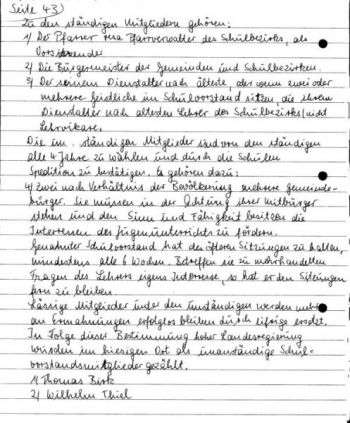 Seite 43)
Zu den ständigen Mitgliedern gehören:
1) Der Pfarrer Pfarrverwalter des Schulbezirks, als
Vorsitzender
2) Die Bürgermeister der Gemeinden im Schulbezirken.
3) Der seinem Dienstalter nach älteste, aber wenn zwei oder
mehrere Geistliche im Schulvorstand sitzen, die ihrem
Dienstalter nach ältesten Lehrer des Schulbezirks, nicht
Lehrvikare.
Die im ständigen Mitglieder sind von den ständigen
alle 4 Jahre zu wählen und durch die Schulen
zu bestätigen. Es gehören dazu:
4) Zwei nach Verhältnis der Bevölkerung mehrere Gemeinde-
bürger. Sie müssen in der Achtung ihrer Mitbürger
stehen und den Sinn und Fähigkeit besitzen die
Interessen des Jugendunterrichts zu fördern.
Genannter Schulvorstand hat des öfteren Sitzungen zu halten,
mindestens alle 6 Wochen. Betreffen sie zu
Fragen des Lehrers eigenes Interesse, so hat er den Sitzungen
fern zu bleiben.
Lässige Mitglieder unter den unständigen werden
an Ermahnungen erfolglos bleiben durch eifrige ersetzt.
In Folge dieser Bestimmung hoher Landesregierung
wurden im hiesigen Ort als unanständige Schul-
vorstandsmitglieder gezählt.
1) Thomas Birk
2) Wilhelm Thiel